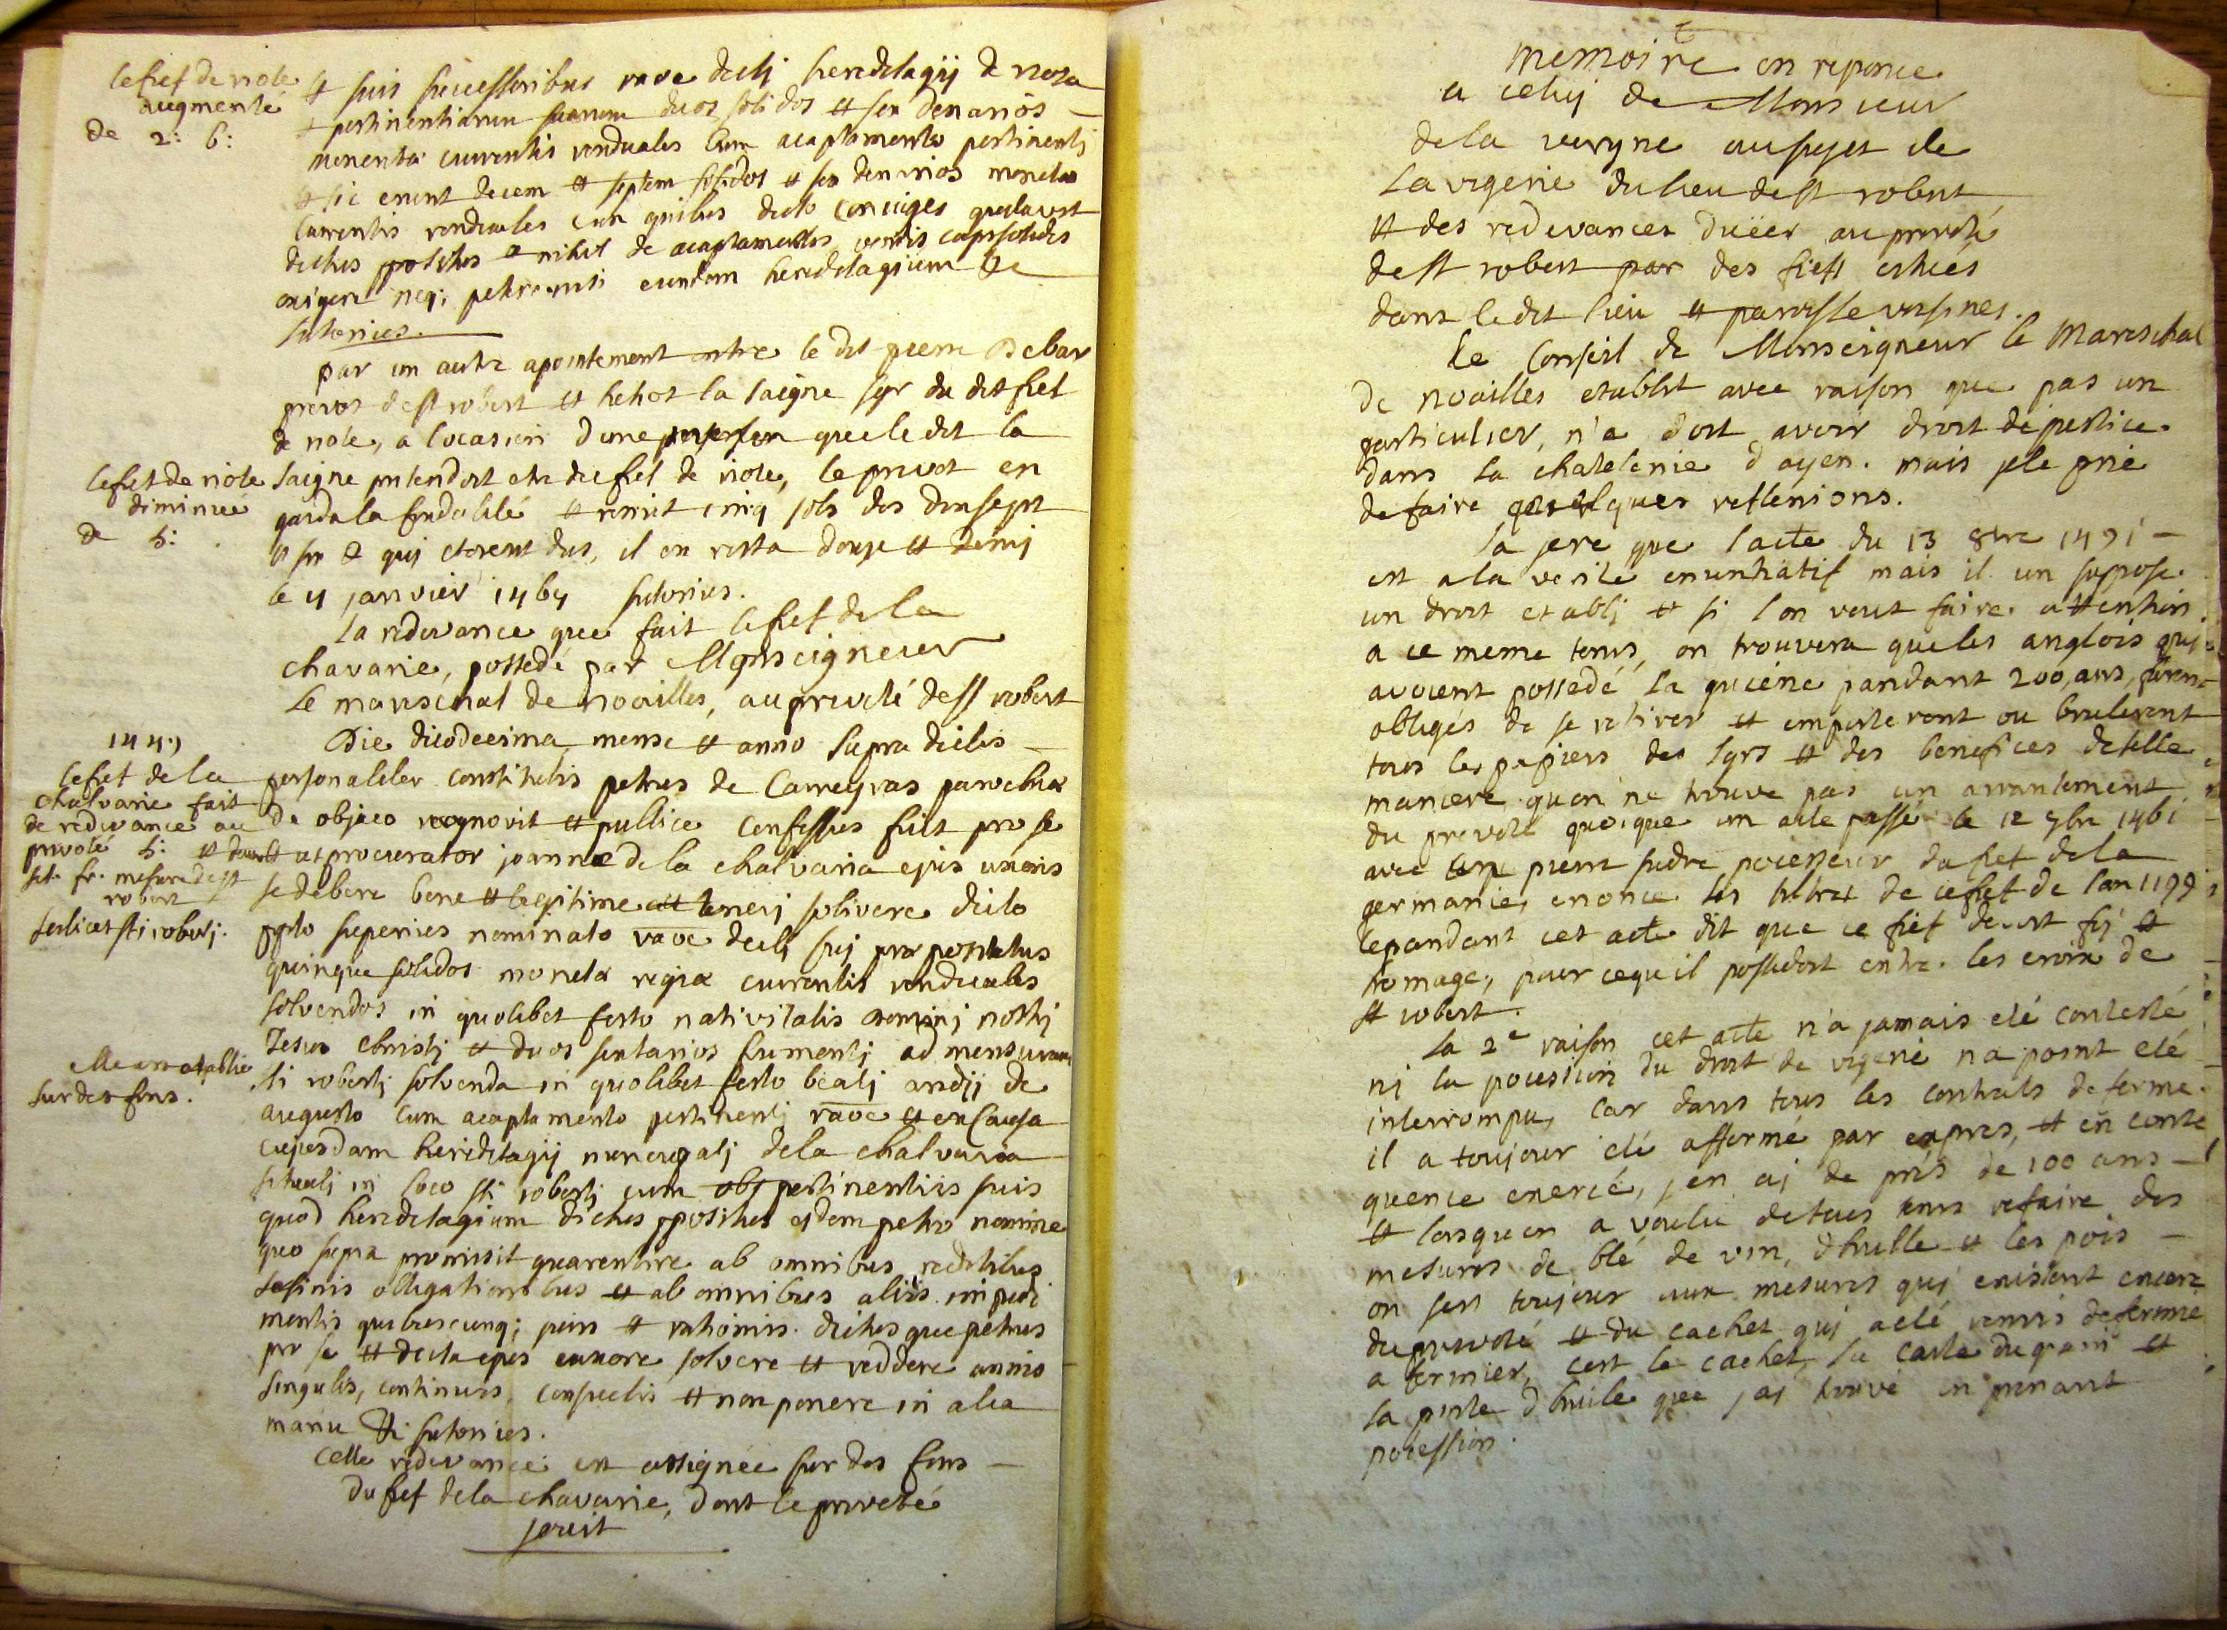 le fief de nole
augmenté
de 2: 6:
et suis successoribus rave dicti heredetagij de nola
pertinentiarum suarum duos solidos et sex denarios
moneta currentis renduales cum acaptamento pertinenti
et sic erunt decem et septem solidos et sex denarios moneta
currentis renduales cum quibus dicto conjuges
dictus ppositus et nihil de acaptamentis
exigere neq; petre eundem heredetagium de
sutorius.
par un autre apointement entre le dit pierre Debar
prevot de st robert et helios la saigne sgr du dit fief
de nole, a locasion d'une que le dit la
le fief de nole
diminué
de 5:
saigne pretendoit etre du fief de nole, le prevot en
garda la fondalité et remit cinq sols des dixsept
et six d qui etoient dus, il en resta douze et demi
le 4 janvier 1464 sutorius.
la redevance que fait le fief de la
chavarie, possedé par Monseigneur
le mareschal de noailles, au prevoté de st robert
Die duodecima mense et anno supra dictis
1449
le fief de la
chalvarie fait
de redevance au
prevoté 5: et deux
set. fr. mesure de st
robert
setiers sti roberj.
personaliter constitutis petrus de Carreyras parochia
de objaco recognovit et pullice confessus fuit pro se
et ut procurator joannæ de la chalvaria ejus uxoris
se debere bene et legitime et teneri solvere dicto
ppto superius nominato rave dicti sui prapositatus
quinque solidos moneta regia currentis renduales
solvendos in quolibet festo nativitatis domini nostrj
Jesus christj et duos sextarios frumentj ad mensuram
elle est etablie
sur des fons.
sti robertj solvenda in quolibet festo béati andij de
augusto cum acaptamento pertinentj rave et ex causa
cujusdam heredetagij nuncupatj de la chalvaria
situatj in loco sti robertj cum pertinentiis suis
quod heredetagium dictus ppositus eidem petro nomine
quo supra promisit guarentire ab omnibus reditibus
obligationibus et ab omnibus aliis impedi
mentis quibuscunq; juris et rationis. dictus que petrus
pro se et dicta ejus euxore solvere et reddere annis
singulis, continuis, consuetis et non ponere in alia
manu sutorius.
cette redevance est assignée sur des fons
du fief de la chavarie, dont le prevoté
jouit
memoire en reponce
a celuj de Monsieur
de la vergne au sujet de
la vigerie du lieu de st robert
et des redevances duëes au prevoté
de st robert par des fiefs citués
dans le dit lieu et paroisse voisines.
Le Conseil de Monseigneur le Mareschal
de noailles etablit avec raison que pas un
particulier, n'a doit avoir droit de justice
dans la chatelenie d'ayen. mais je le prie
de faire quelques reflexions.
la jere que lacte du 13 8bre 1491
est a la verité enuntiatif mais il un suppose
un droit etablj et si lon veut faire attention
a ce meme tems, on trouvera que les anglois quj
avoient possedé la guiene pandant 200, ans, furent
obligés de se retirer et emporteront ou brulerent
tous les papiers des sgrs et des benefices de telle
maniere quon ne trouve pas un arrantement
du prevoté quoique un acte passé le 12 9bre 1461
avec pierre poiesseur du fief de la
germanie, enonce les titres de ce fief de l'an 1199
Cependant cet acte dit que ce fief devoit foj et
homage, pour ce qu'il possedoit entre les croix de
st robert.
la 2e raison cet acte n'a jamais eté contesté
nj la poiession du droit de vigerie n'a point eté
interrompu, car dans tous les contrats de ferme
il a toujour eté affermé par expres, et en conse
quence exercé, j'en aj de prés de 100 ans
et lorsquon a voulu de tous tems refaire des
mesures de blé de vin, d'huille et les pois
on sen toujour aux mesures quj existent encore
du prevoté et du cachet quj a eté remis de fermie
a fermier, cest le cachet, la carte du grain et
la pinte d'huile que j'aj trouvé en prenant
poiession.